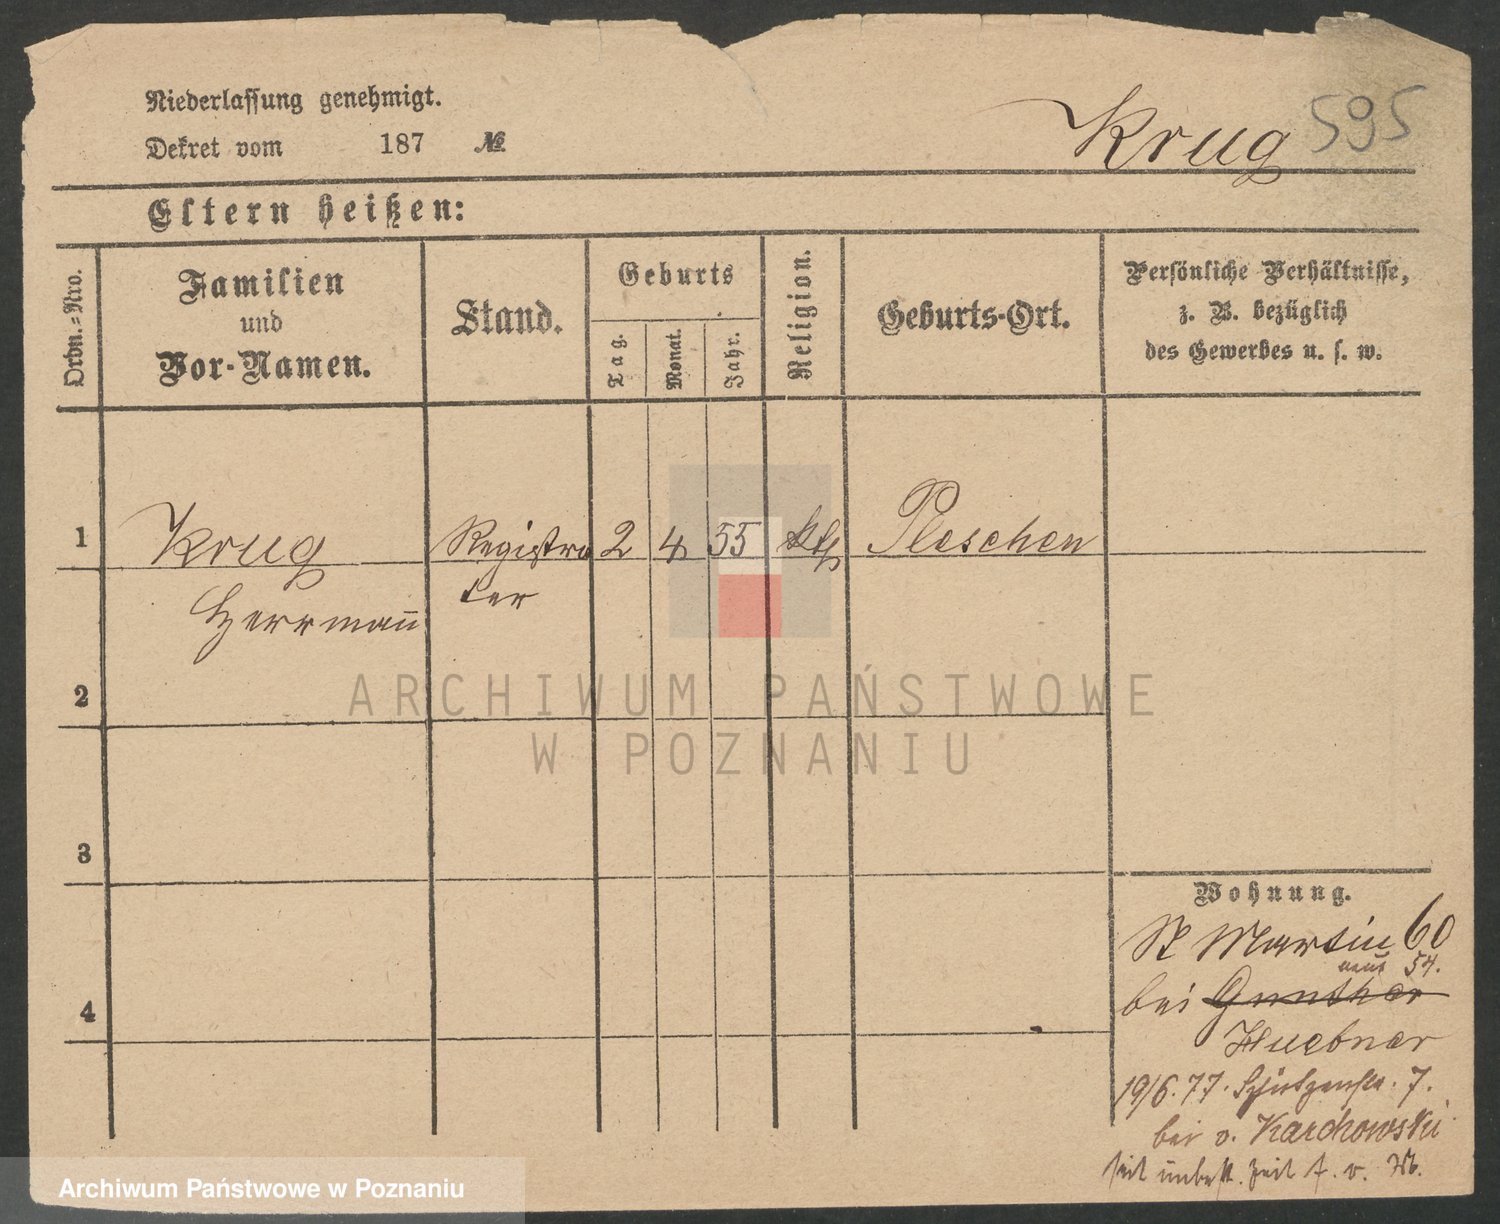 Niederlassung genehmigt.
Dekret vom 187 №
Krug 595
Eltern heißen:
Ordn.=Nro.
Familien
und
Vor-Namen.
Stand.
Geburts
Tag.
Monat.
Jahr.
Religion.
Geburts-Ort.
Persönliche Verhältnisse,
z. B. bezüglich
des Gewerbes u. s. w.
1 Krug Registra 2 4 55 kth Pleschen
Herrmann tor
2
3
4
ARCHIWUM PAŃSTWOWE
W POZNANIU
Wohnung.
St Martin 60
neue 54.
bei Gunther
Huebner
19/6.77. Schützenstr. 7.
bei v. Karchowski
seit unbest. Zeit f. v. W.
Archiwum Państwowe w Poznaniu